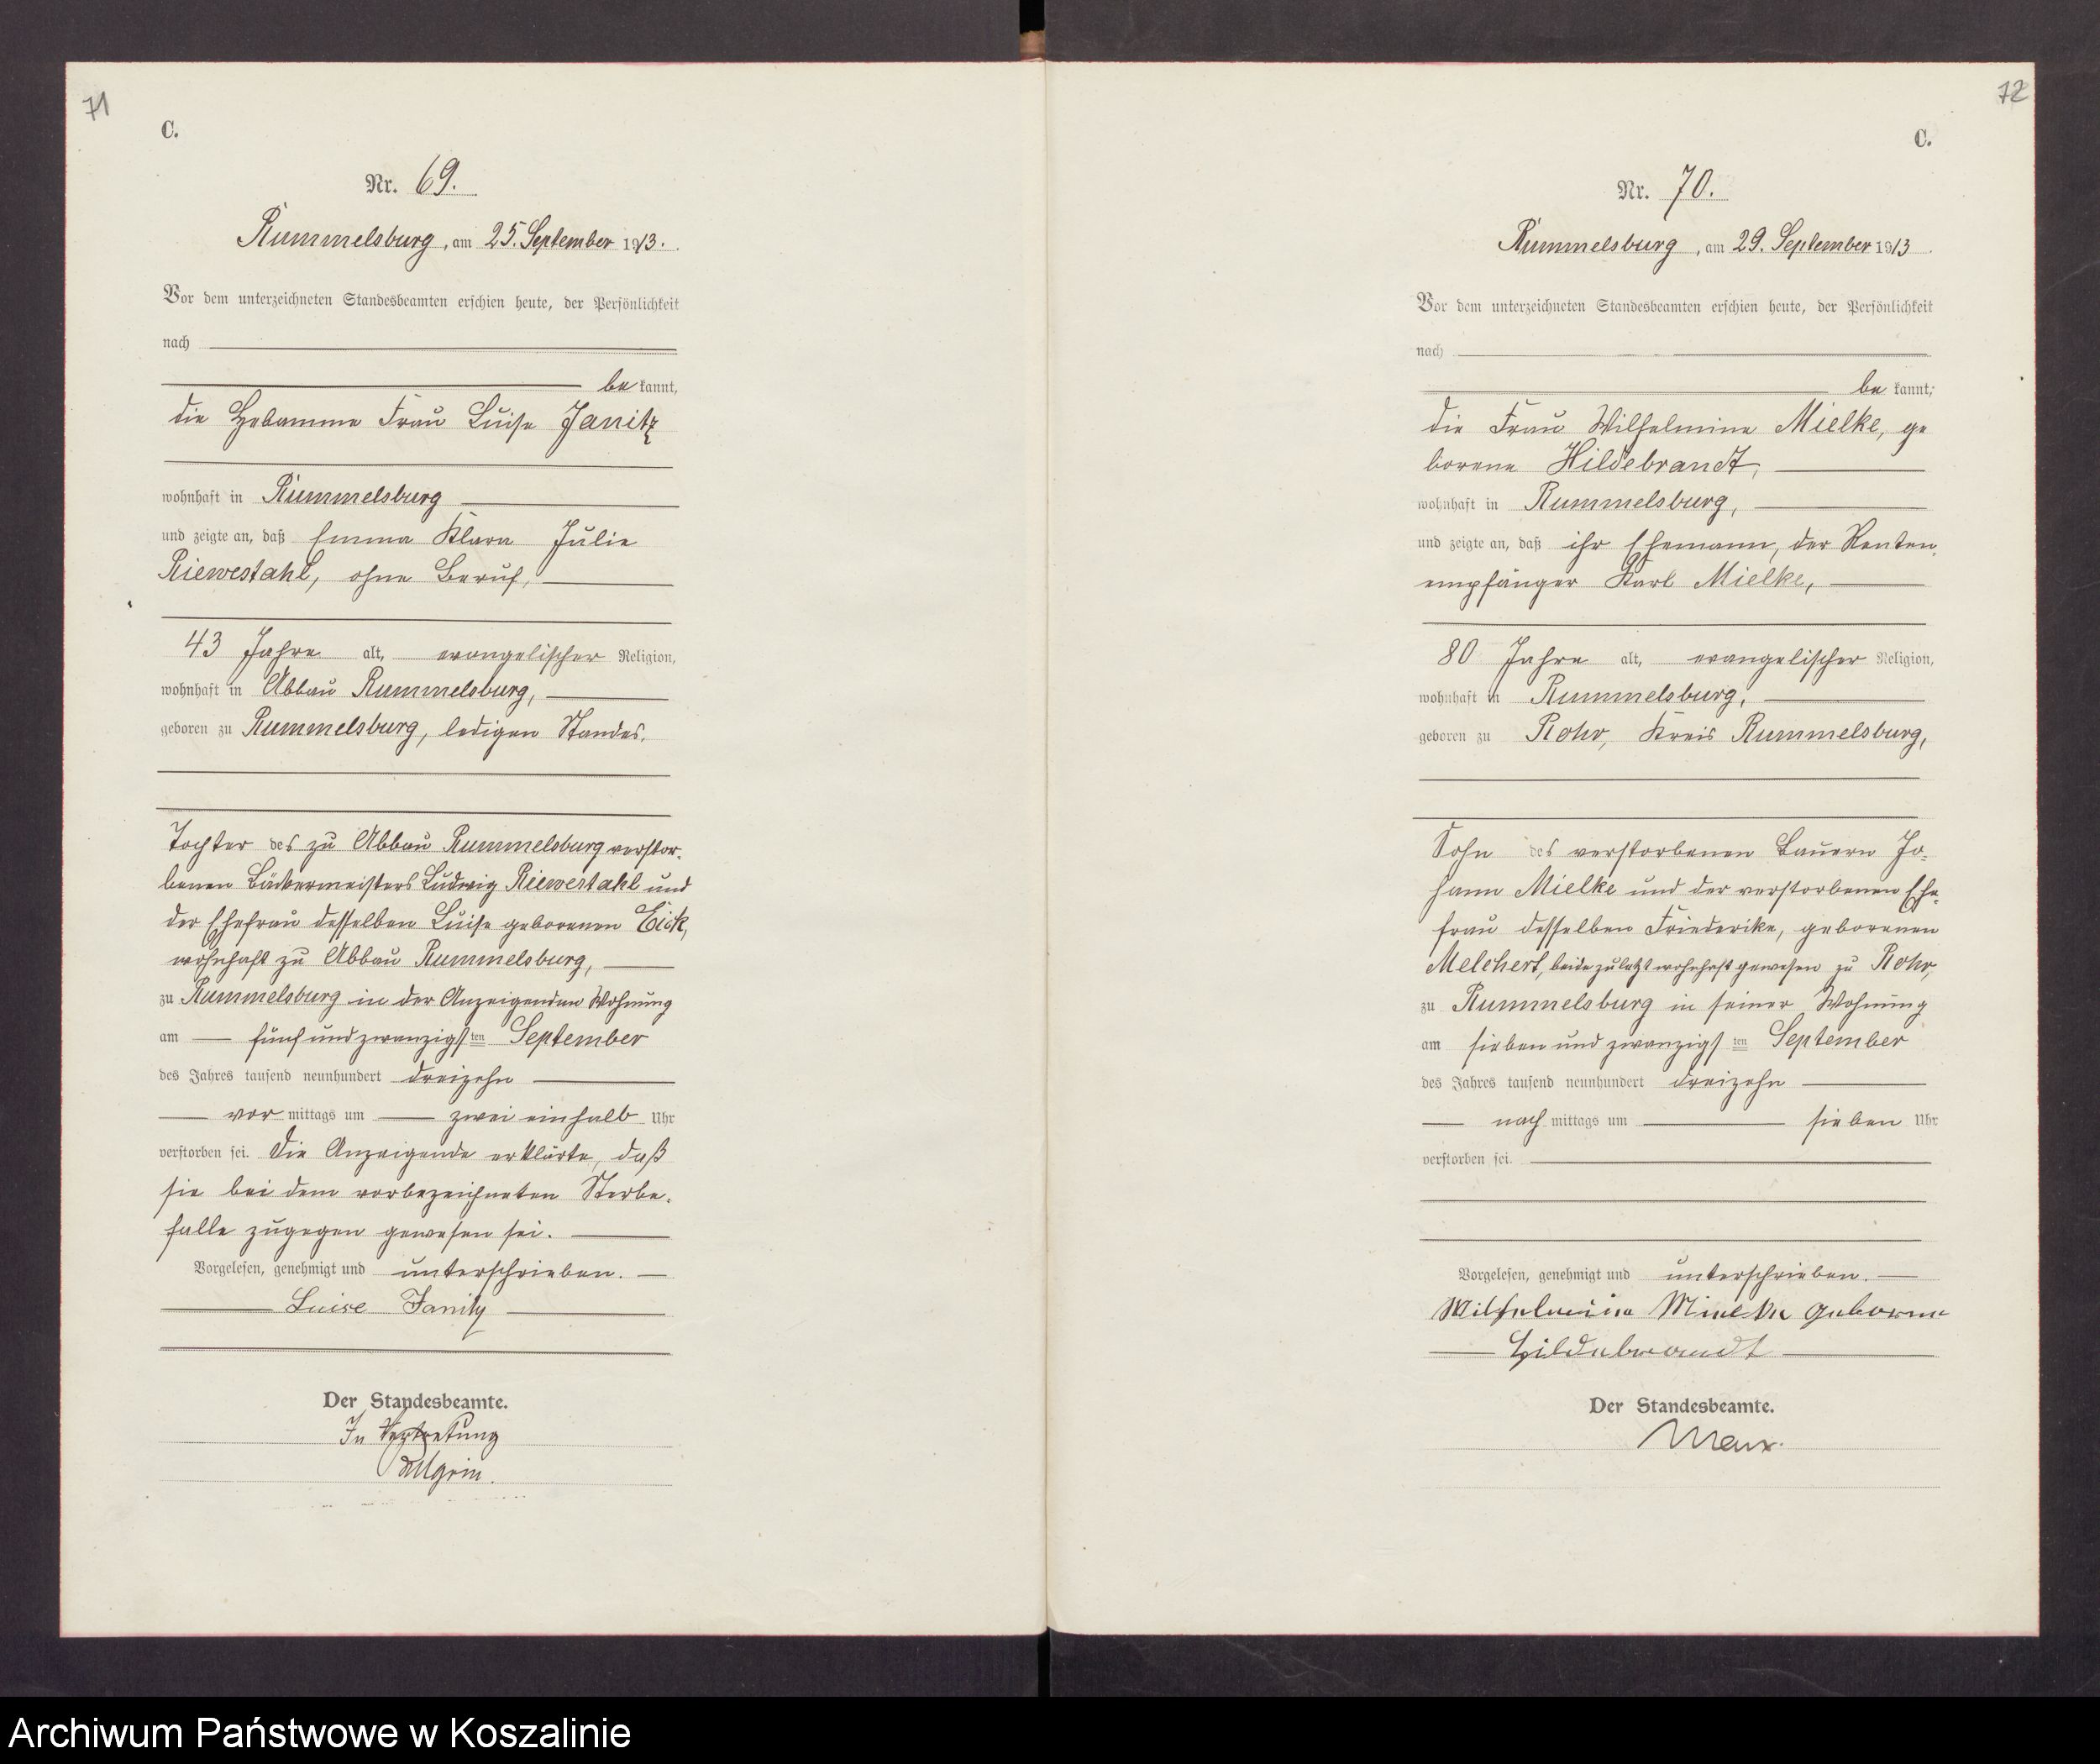 71
C.
Nr. 69.
Rummelsburg, am 25. September 1913.
Vor dem unterzeichneten Standesbeamten erschien heute, der Persönlichkeit
nach
be kannt,
die Hebamme Frau Luise Janitz
wohnhaft in Rummelsburg
und zeigte an, daß Emma Klara Julie
Riewestahl, ohne Beruf,
43 Jahre alt, evangelischer Religion,
wohnhaft in Abbau Rummelsburg,
geboren zu Rummelsburg, ledigen Standes.
Tochter des zu Abbau Rummelsburg verstor-
benen Bäckermeisters Ludwig Riewestahl und
der Ehefrau desselben Luise geborenen Eick,
wohnhaft zu Abbau Rummelsburg,
zu Rummelsburg in der Anzeigenden Wohnung
am fünf und zwanzigsten September
des Jahres tausend neunhundert dreizehn
vor mittags um zwei einhalb Uhr
verstorben sei. Die Anzeigende erklärte, daß
sie bei dem vorbezeichneten Sterbe-
falle zugegen gewesen sei.
Vorgelesen, genehmigt und unterschrieben.
Luise Janitz
Der Standesbeamte.
In Vertretung
72
C.
Nr. 70.
Rummelsburg, am 29. September 1913.
Vor dem unterzeichneten Standesbeamten erschien heute, der Persönlichkeit
nach
be kannt,
die Frau Wilhelmine Mielke, ge
borene Hildebrandt,
wohnhaft in Rummelsburg,
und zeigte an, daß ihr Ehemann, der Renten-
empfänger Karl Mielke,
80 Jahre alt, evangelischer Religion,
wohnhaft in Rummelsburg,
geboren zu Rohr, Kreis Rummelsburg,
Sohn des verstorbenen Bauern Jo-
hann Mielke und der verstorbenen Ehe-
frau desselben Friederike, geborenen
Melchert, beide zuletzt wohnhaft gewesen zu Rohr,
zu Rummelsburg in seiner Wohnung
am sieben und zwanzigsten September
des Jahres tausend neunhundert dreizehn
nach mittags um sieben Uhr
verstorben sei.
Vorgelesen, genehmigt und unterschrieben.
Wilhelmine Mielke geborene
Hildebrandt
Der Standesbeamte.
Archiwum Państwowe w Koszalinie